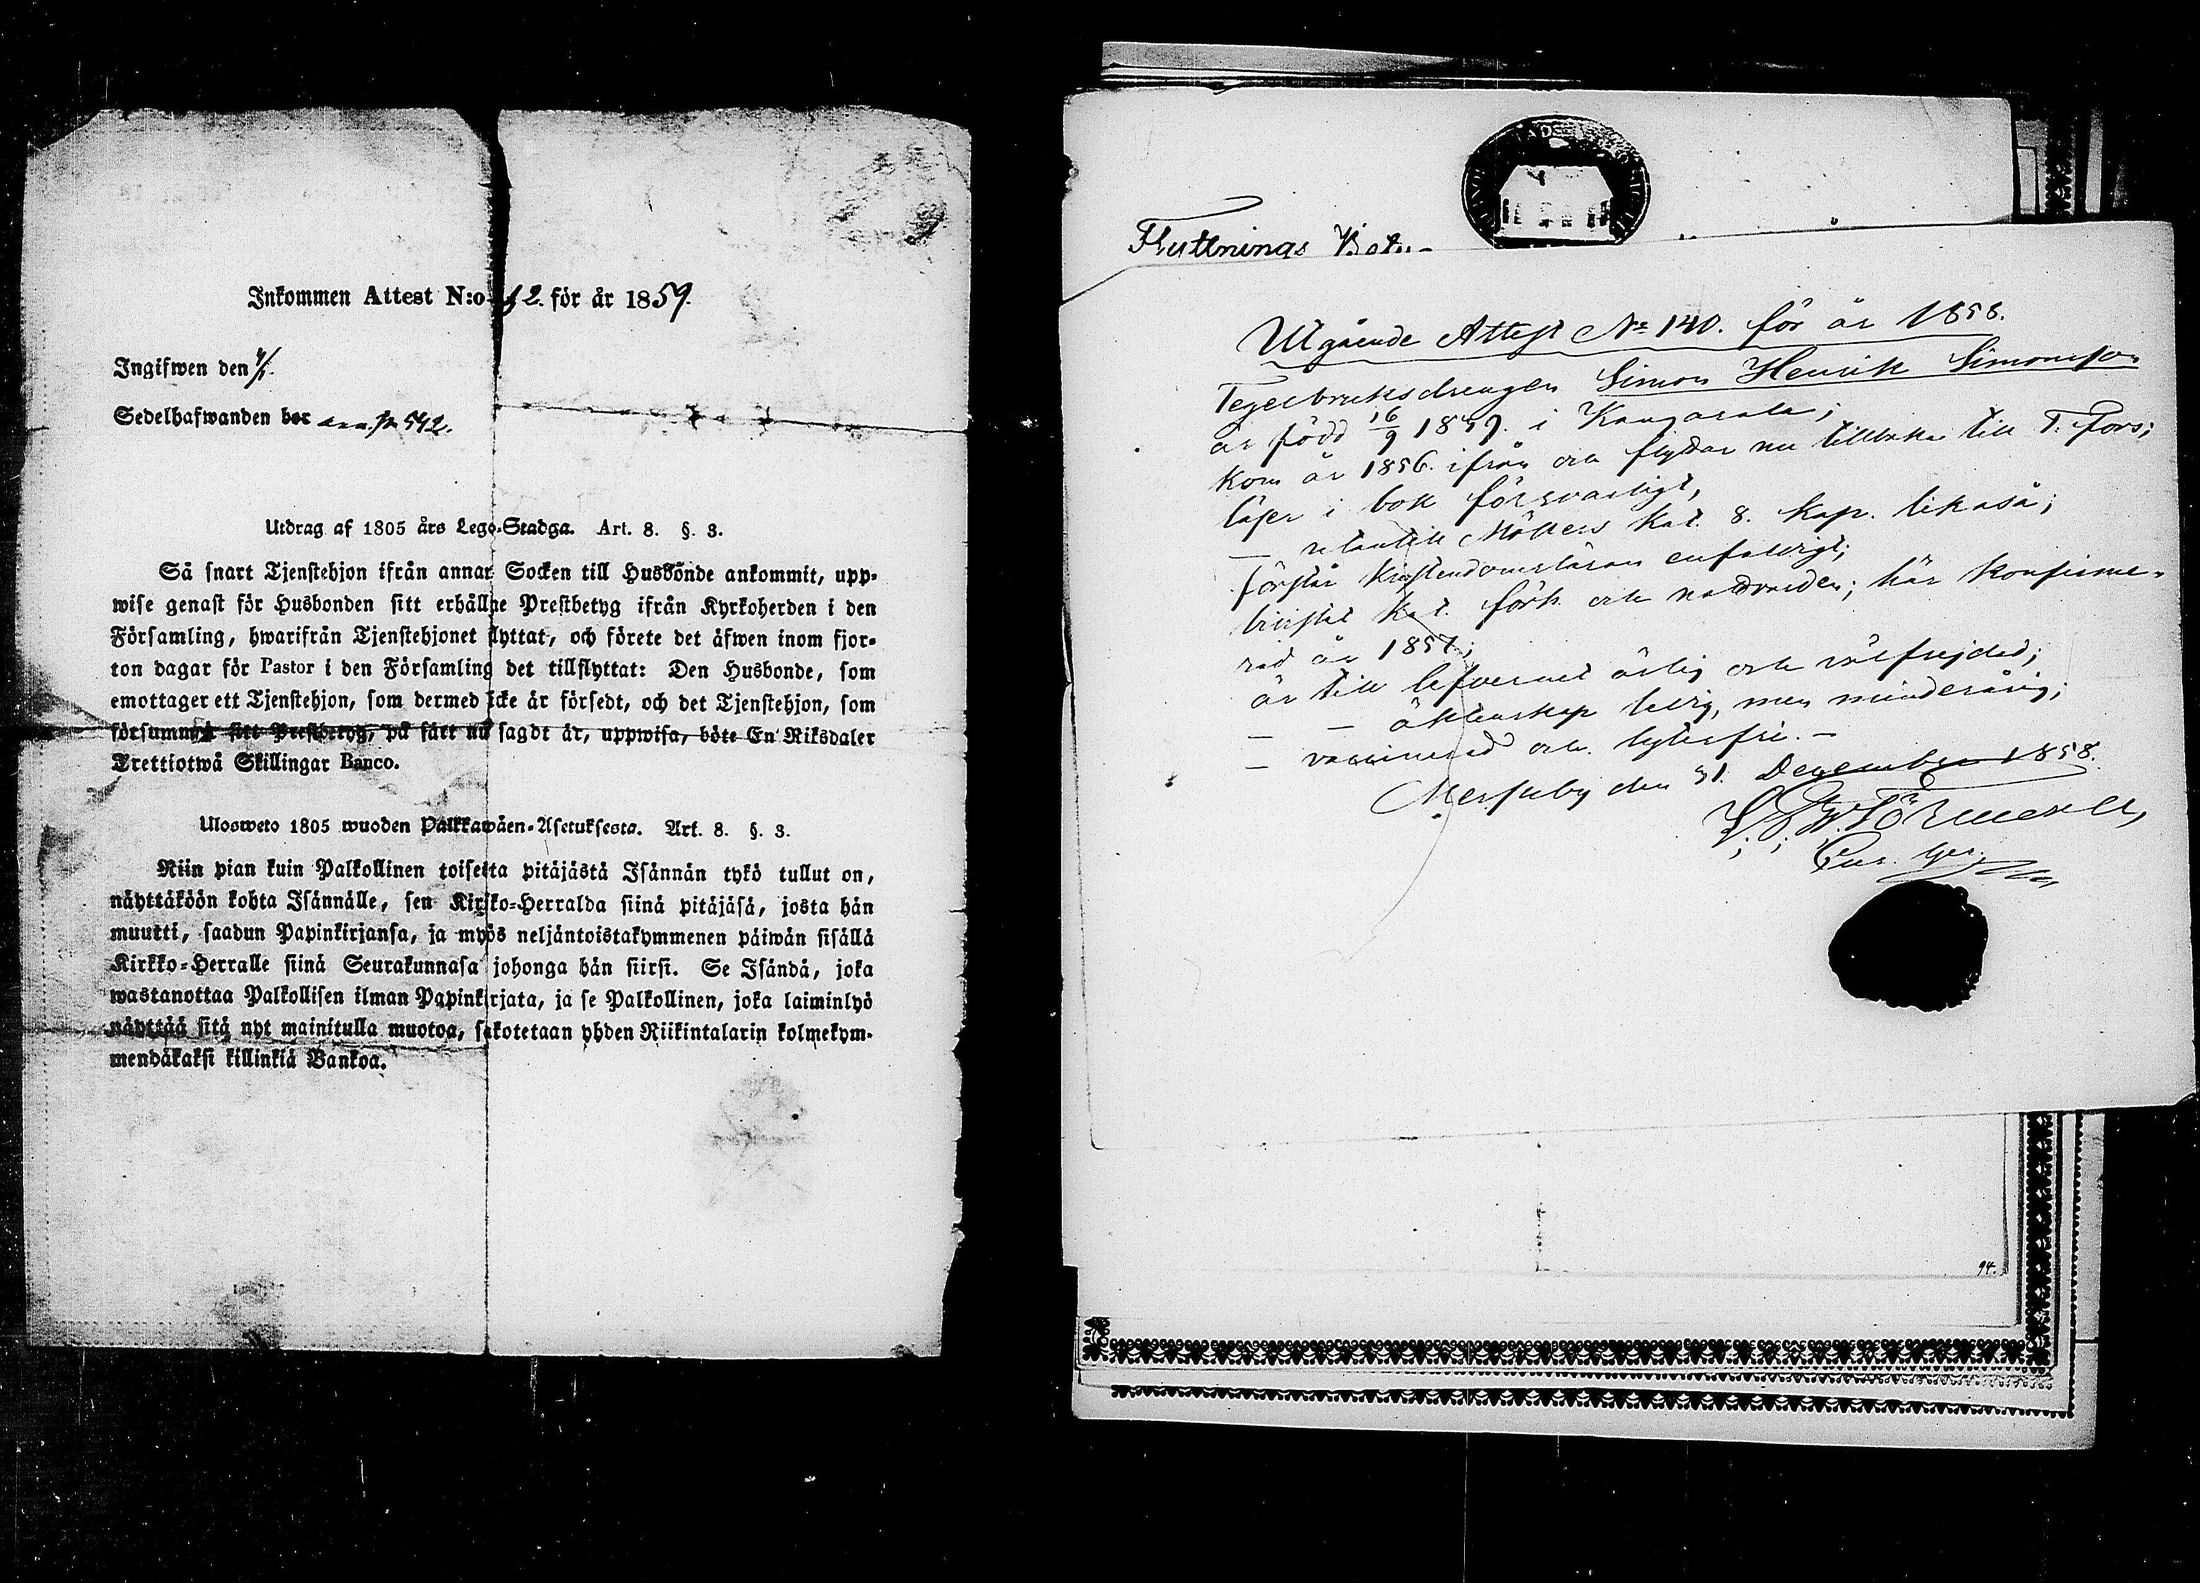 Inkommen Attest N:o 12. för år 1859.
Ingifwen den 4/1.
Sedelhafwanden bor p 542.
Utdrag af 1805 års Lego-Stadga. Art. 8. §. 3.
Så snart Tjenstehjon ifrån annat Socken till Husbonde ankommit, upp-
wise genast för Husbonden sitt erhållne Prestbetyg ifrån Kyrkoherden i den
Församling, hwarifrån Tjenstehjonet flyttat, och förete det äfwen inom fjor-
ton dagar för Pastor i den Församling det tillflyttat: Den Husbonde, som
emottager ett Tjenstehjon, som dermed icke är försedt, och det Tjenstehjon, som
försummar sitt Prestbetyg, på sätt nu sagdt är, uppwisa, böte En Riksdaler
Trettiotwå Skillingar Banco.
Ulosweto 1805 wuoden Palkkawäen-Asetuksesta. Art. 8. §. 3.
Niin pian kuin Palkollinen toisesta pitäjästä Isännän tykö tullut on,
näyttäköön kohta Isännälle, sen Kirkko-Herralda siinä pitäjäsä, josta hän
muutti, saadun Papinkirjansa, ja myös neljäntoistakymmenen päiwän sisällä
Kirkko-Herralle siinä Seurakunnasa johonga hän siirsi. Se Isändä, joka
wastanottaa Palkollisen ilman Papinkirjata, ja se Palkollinen, joka laiminlyö
näyttää sitä nyt mainitulla muotoa, sakotetaan yhden Riikintalarin kolmekym-
mendäkaksi killinkiä Bankoa.
Fluttnings
Utgående Attest No 140. för år 1858.
Tegelbruksdrengen Simon Henrik Simonsson
är född 16/9 18 i Kangasala;
kom år 1856. ifrån och flyttar nu tillbaka till T. Fors;
läser i bok försvarligt,
— utantill Möllers Kat. 8. Kap. likaså;
förstår Kristendomsläran enfaldigt;
bevistat Kat. förh. och nattvarden; här konfirme-
rad år 1857;
är till lefvernet ärlig och välfrejdad;
— — äktenskap ledig, men minderårig;
— vaccinerad och lytesfri. —
Messuby den 31. December 1858.
94.